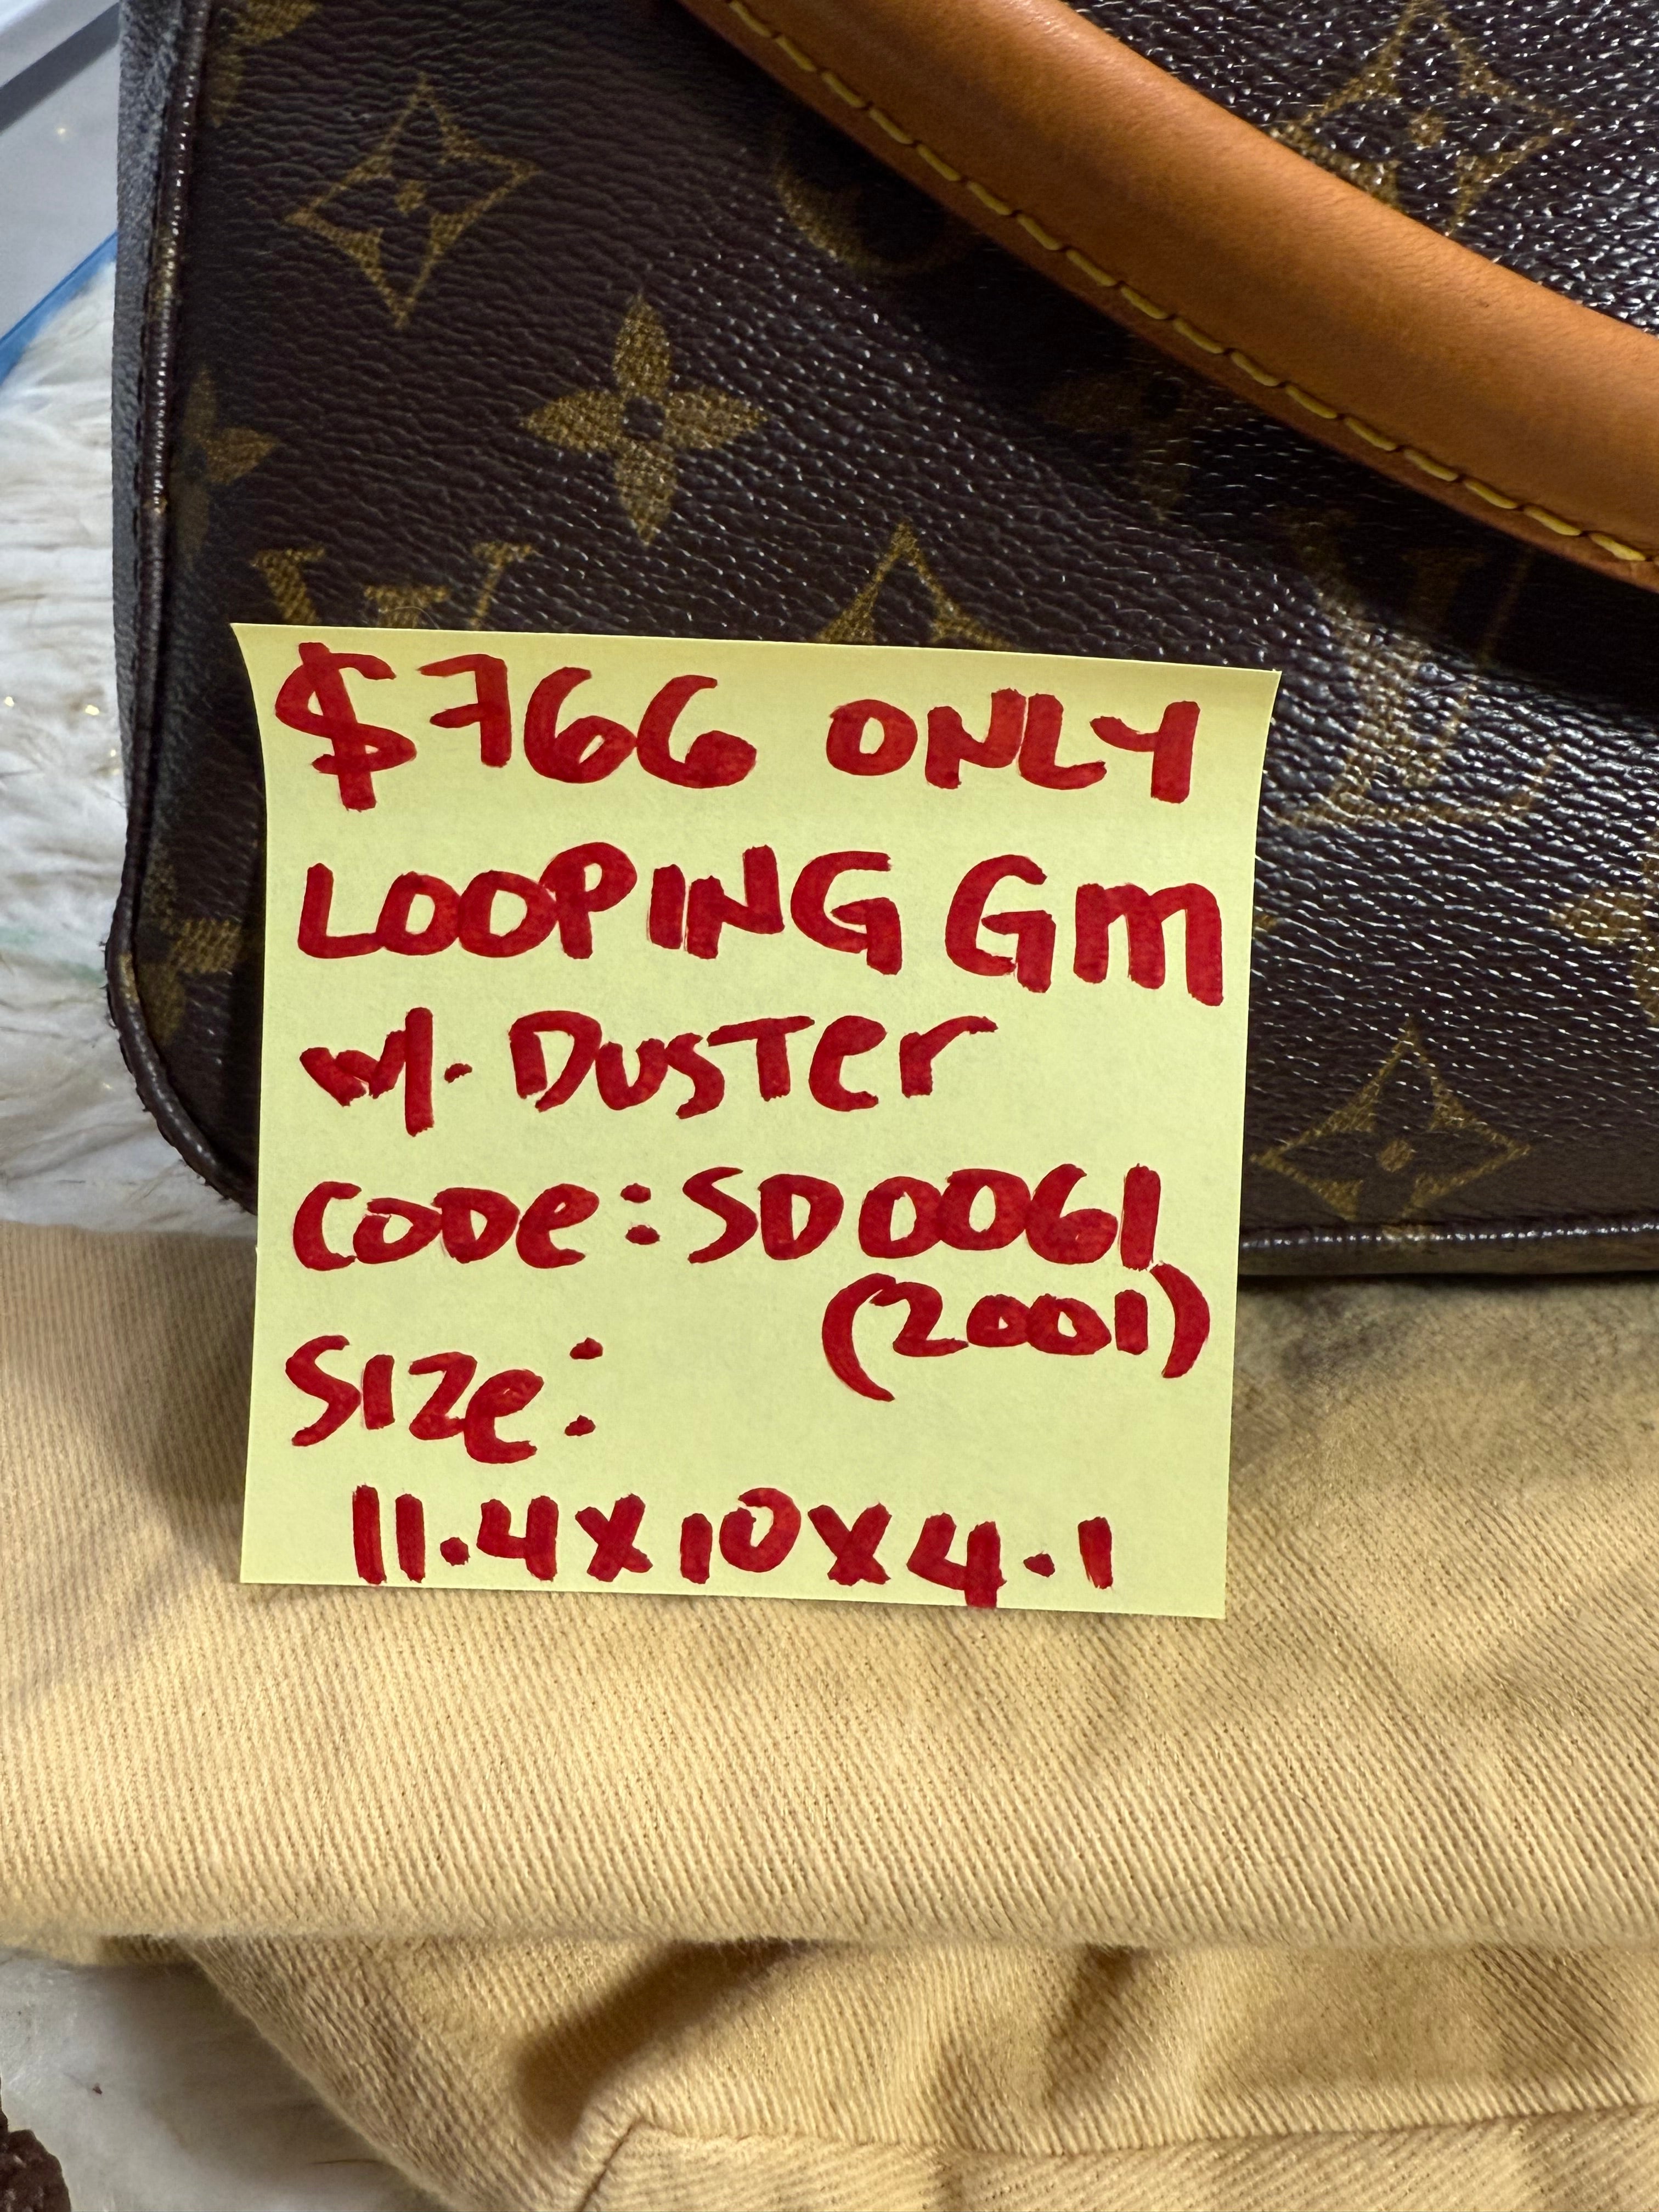 $766 ONLY
LOOPING GM
w/. DUSTer
CODe: SD0061
(2001)
SIZe:
11.4x10x4.1